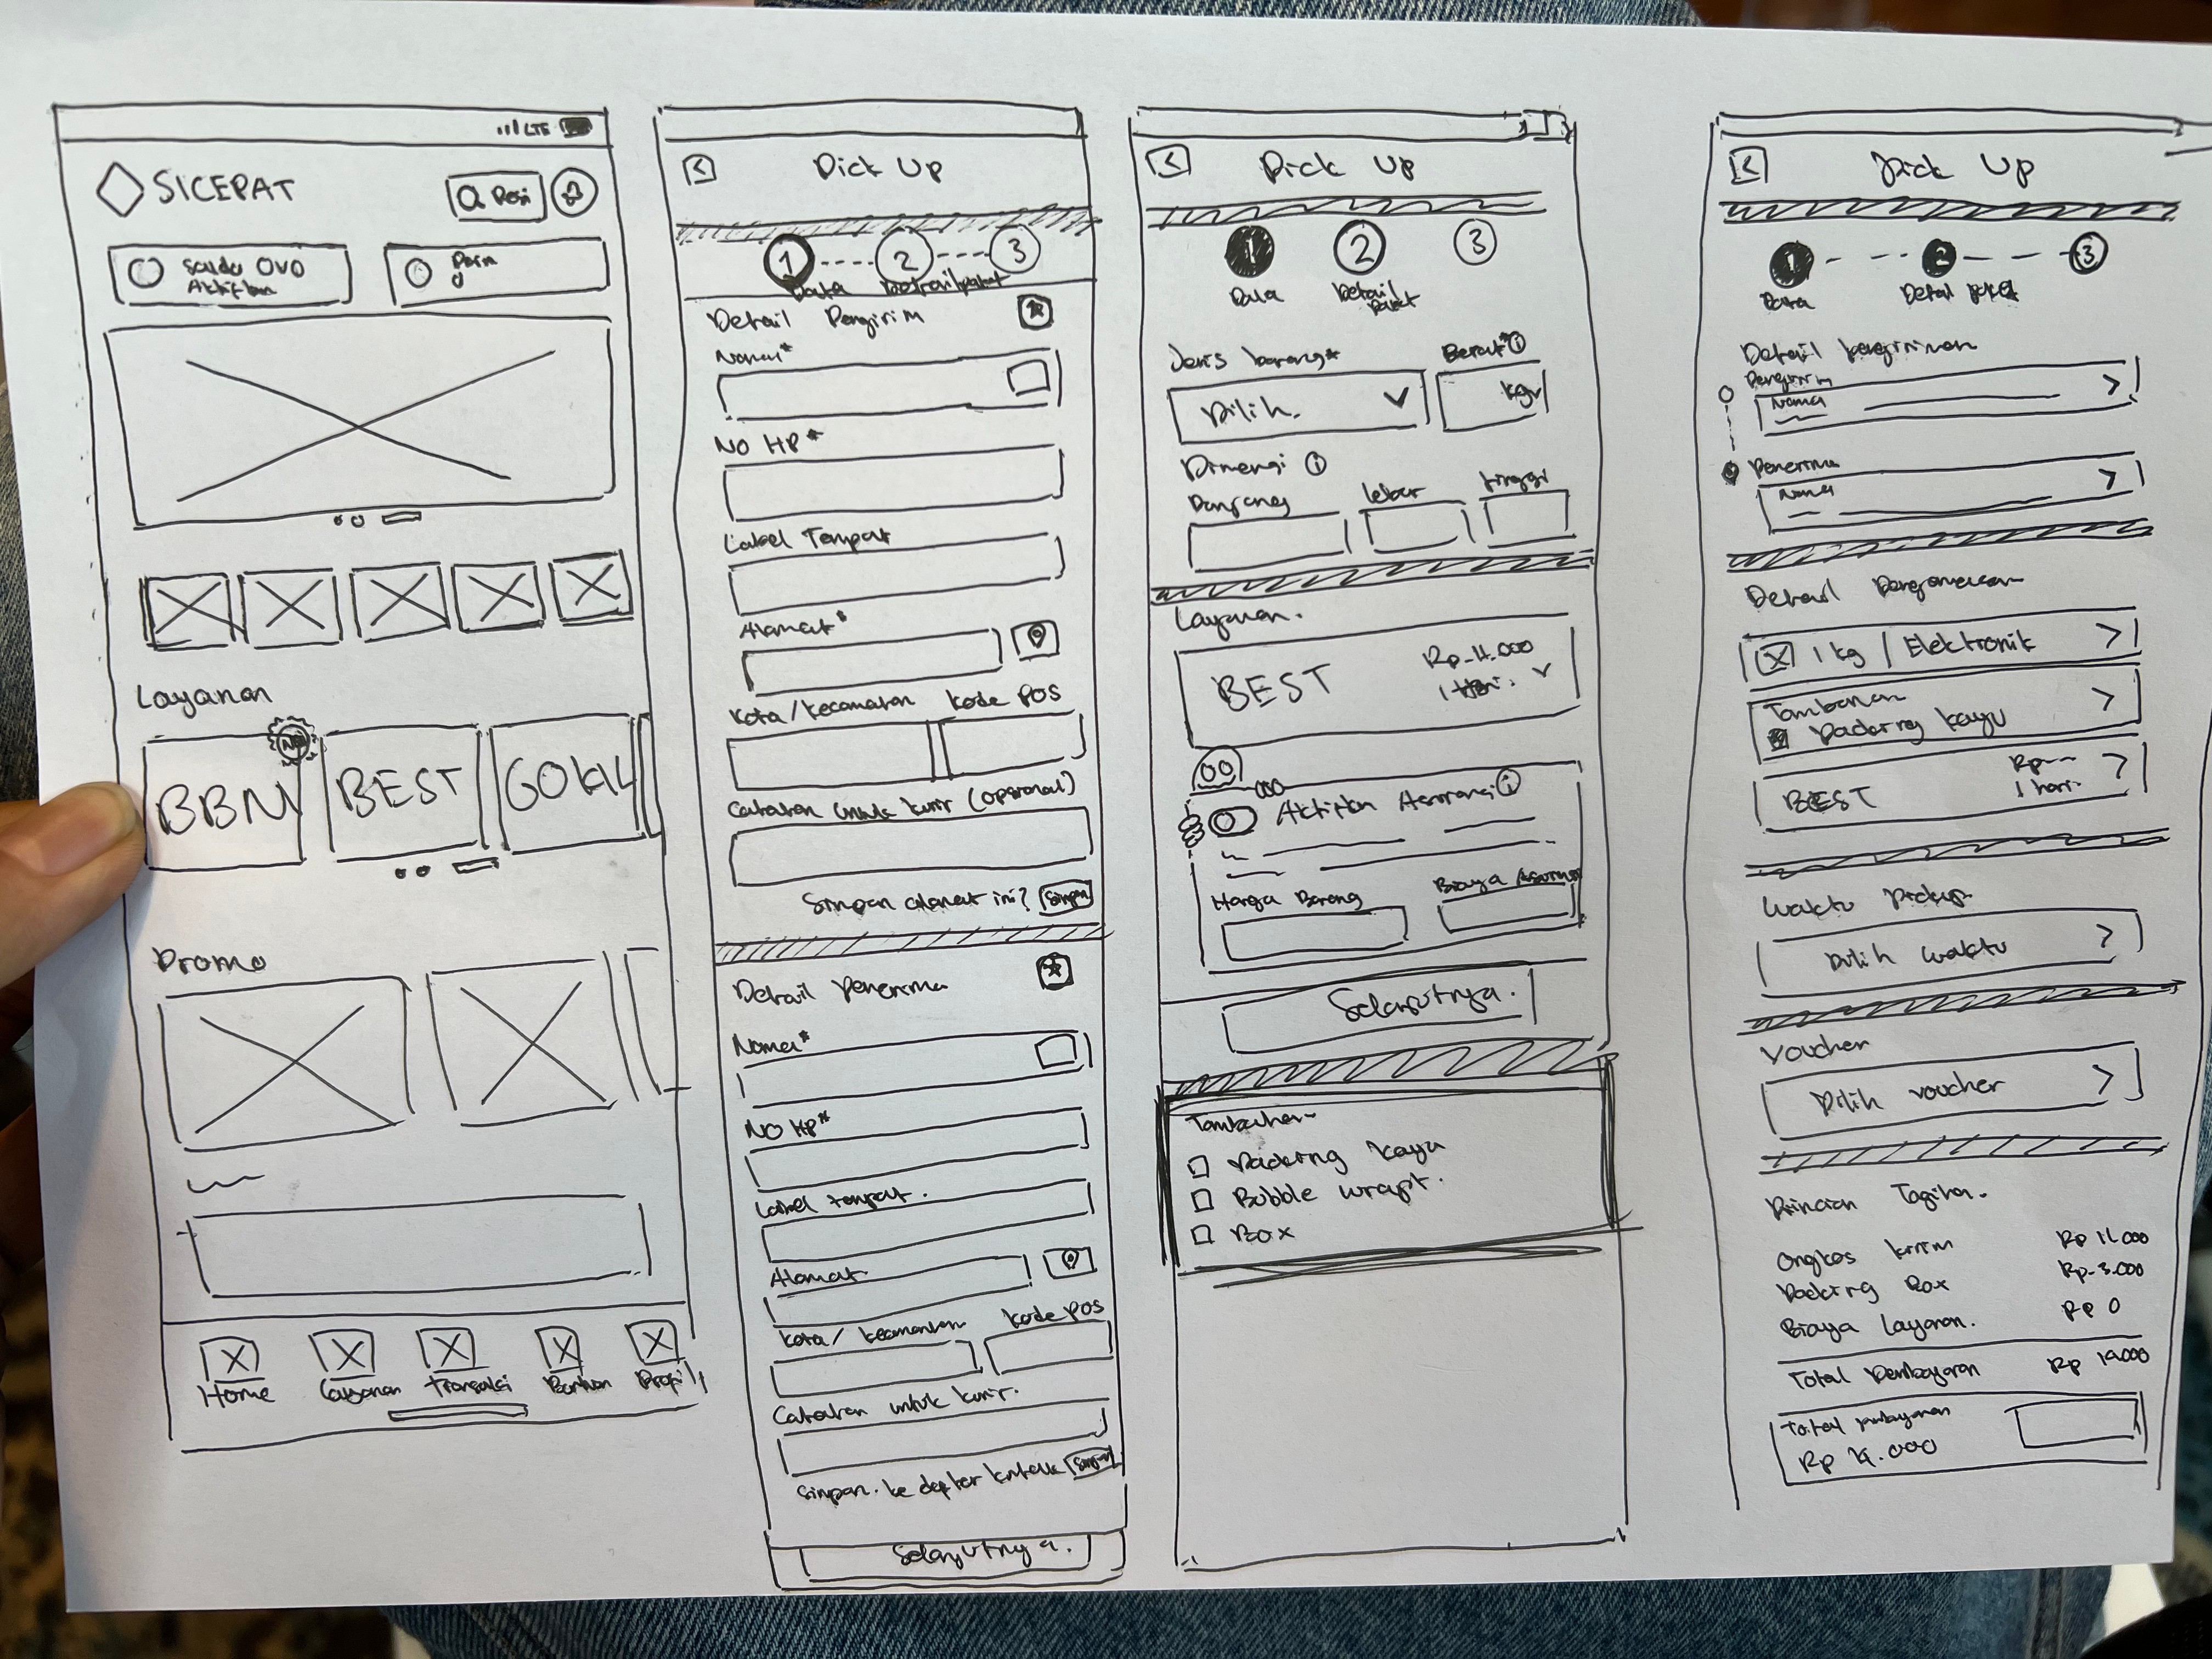 LTE
SICEPAT
Resi
Saldo OVO
Aktifkan
Poin
0
Layanan
BBN
BEST
GOKIL
Promo
Home
Layanan
Transaksi
Bantuan
Profil
Pick Up
1
2
3
Data
Detail paket
Detail Pengirim
Nama*
No HP*
Label Tempat
Alamat*
Kota/kecamatan
Kode POS
Catatan untuk kurir (opsional)
Simpan alamat ini? Simpan
Detail Penerima
Nama*
NO HP*
Label tempat.
Alamat
Kota/ kecamatan
Kode POS
Catatan untuk kurir.
Simpan. ke daftar kontak Simpan
Selanjutnya.
Pick Up
1
2
3
Data
Detail
Paket
Jenis barang*
Berat*
Pilih.
kg
Dimensi
Panjang
lebar
tinggi
Layanan.
BEST
1 Hari.
Aktifkan Asuransi
Harga Barang
Biaya Asuransi
Selanjutnya.
Tambahan
Packing kayu
Bubble wrap.
Box
Pick Up
1
2
3
Data
Detail paket
Detail pengiriman
Pengirim
Nama
Penerima
Nama
Detail Pengemasan
1 kg / Elektronik
Tambahan
Packing kayu
BEST
Rp
1 hari.
Waktu Pickup
Pilih waktu
Voucher
Pilih voucher
Rincian Tagihan.
Ongkos kirim
Rp 11.000
Packing Box
Rp 3.000
Biaya Layanan.
Rp 0
Total Pembayaran
Rp
Total pembayaran
Rp